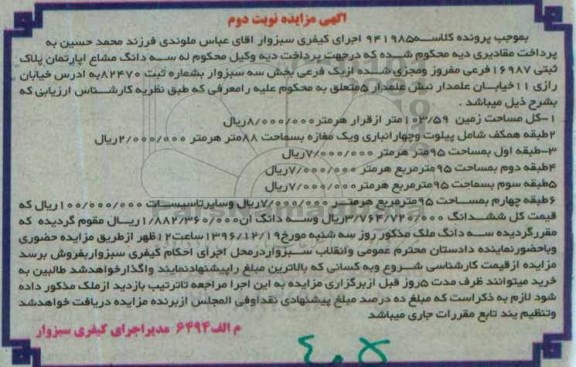 آگهی مزایده نوبت دوم
بموجب پرونده کلاسه ۹۴۱۹۸۵ اجرای کیفری سبزوار اقای عباس ملوندی فرزند محمد حسین به
پرداخت مقادیری دیه محکوم شده که درجهت پرداخت دیه وکیل محکوم له سه دانگ مشاع اپارتمان پلاک
ثبتی ۱۶۹۸۷ فرعی مفروز ومجزی شده ازیک فرعی بخش سه سبزوار بشماره ثبت ۸۲۴۷۰ به ادرس خیابان
رازی ۱۱خیابان علمدار نبش علمدار ۵متعلق به محکوم علیه رامعرفی که طبق نظریه کارشناس ارزیابی که
بشرح ذیل میباشد .
۱-کل مساحت زمین ۱۰۳/۵۹متر ازقرار هرمتر۸/۰۰۰/۰۰۰ریال
۲طبقه همکف شامل پیلوت وچهارانباری ویک مغازه بمساحت ۸۸متر هرمتر ۲/۰۰۰/۰۰۰ریال
۳-طبقه اول بمساحت ۹۵متر هرمتر ۷/۰۰۰/۰۰۰ریال
۴طبقه دوم بمساحت ۹۵مترمربع هرمتر ۷/۰۰۰/۰۰۰ریال
۵طبقه سوم بمساحت ۹۵مترمربع هرمتر۷/۰۰۰/۰۰۰ریال
۶طبقه چهارم بمساحت ۹۵مترمربع هرمتر ۷/۰۰۰/۰۰۰ریال وسایرتاسیسات ۱۰۰/۰۰۰/۰۰۰ریال که
قیمت کل ششدانگ ۳/۷۶۴/۷۲۰/۰۰۰ریال وسه دانگ ان۱/۸۸۲/۳۶۰/۰۰۰ریال مقوم گردیده که
مقررگردیده سه دانگ ملک مذکور روز سه شنبه مورخ۱۳۹۶/۱۲/۱۹ساعت۱۲ظهر ازطریق مزایده حضوری
وباحضورنماینده دادستان محترم عمومی وانقلاب سبزواردرمحل اجرای احکام کیفری سبزواربفروش برسد
مزایده ازقیمت کارشناسی شروع وبه کسانی که بالاترین مبلغ راپیشنهادنمایند واگذارخواهدشد طالبین به
خرید میتوانند ظرف مدت ۵روز قبل ازبرگزاری مزایده به این اجرا مراجعه تاترتیب بازدید ازملک مذکور داده
شود لازم به ذکراست که مبلغ ده درصد مبلغ پیشنهادی نقداوفی المجلس ازبرنده مزایده دریافت خواهدشد
وتنظیم یند تابع مقررات جاری میباشد
م الف ۶۴۹۴ مدیراجرای کیفری سبزوار